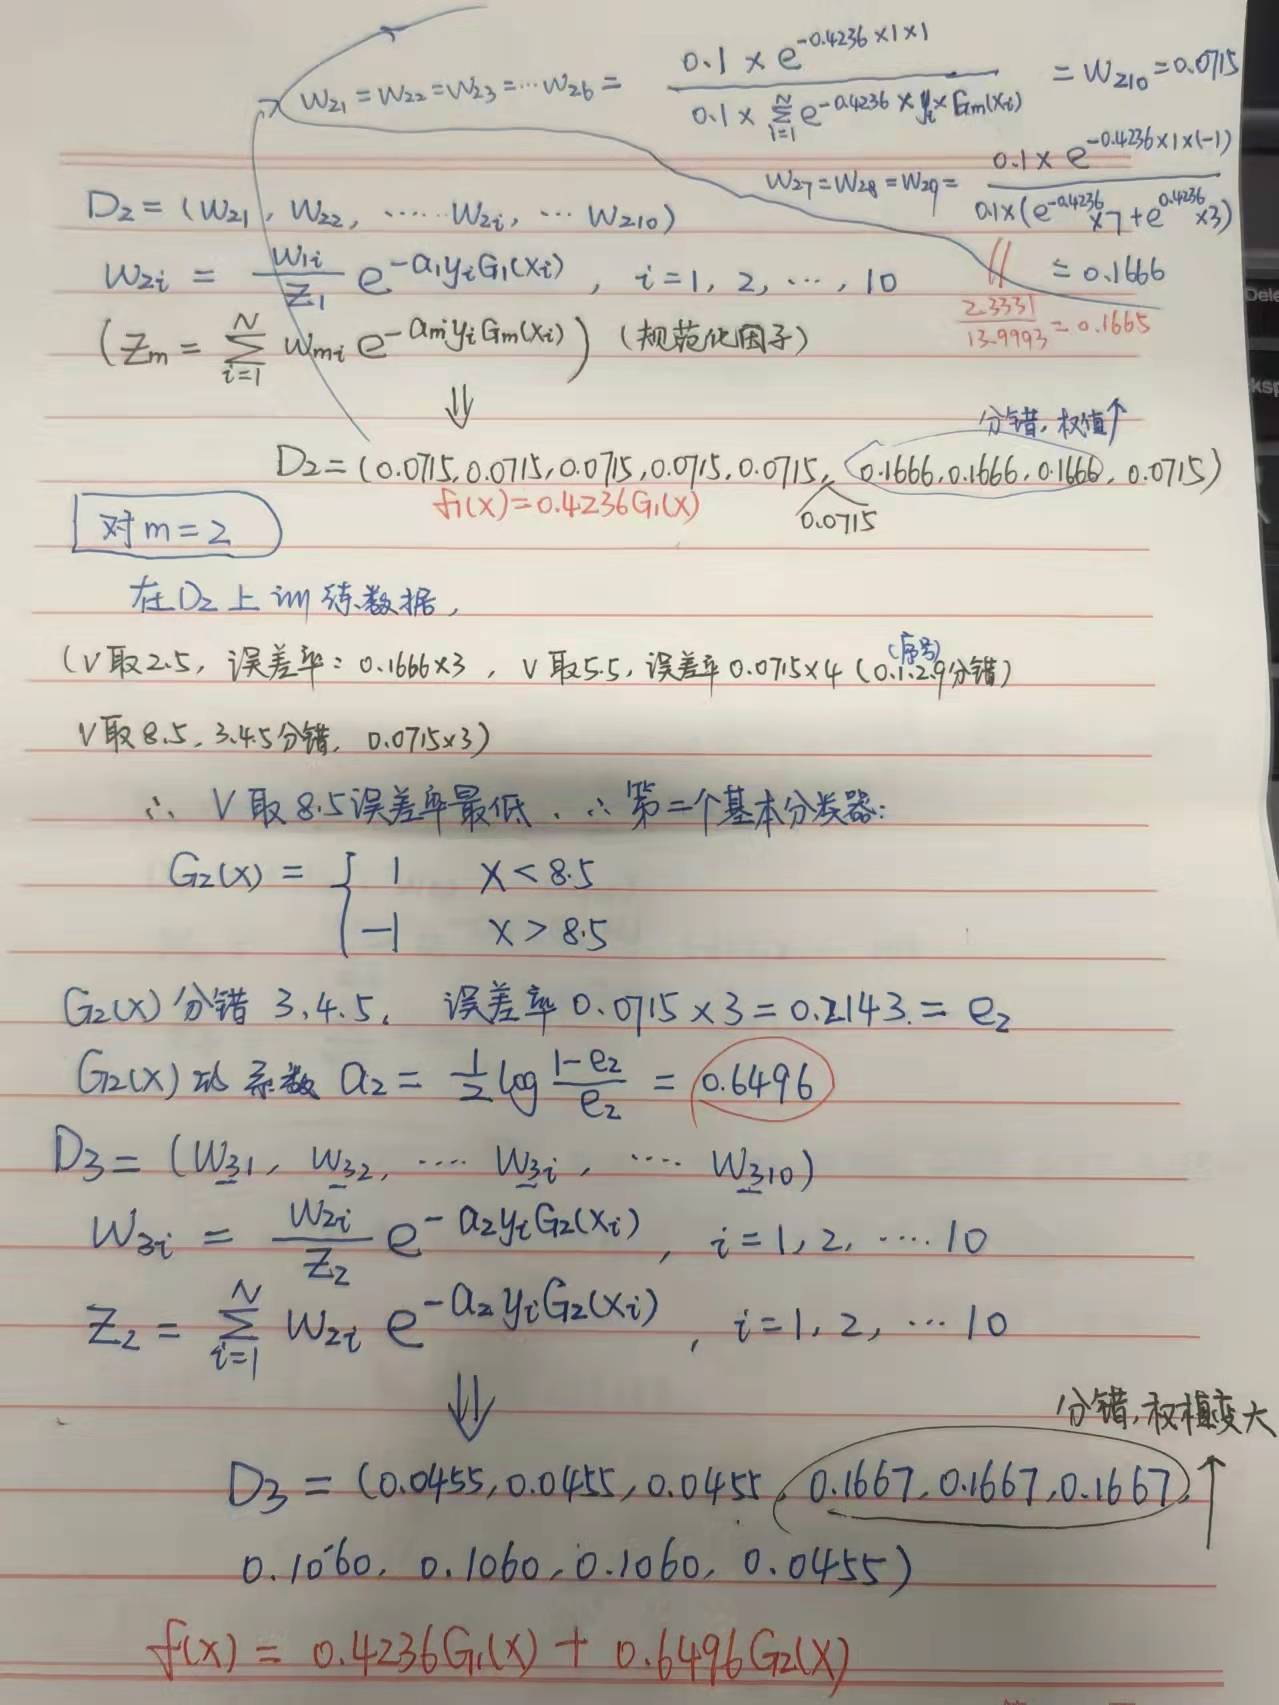 W₂₁ = W₂₂ = W₂₃ = ⋯ W₂₆ = \frac{0.1 × e^{-0.4236×1×1}}{0.1 × \sum_{i=1}^{N} e^{-0.4236 × y_i × G_m(x_i)}} = W₂₁₀ = 0.0715
W₂₇ = W₂₈ = W₂₉ = \frac{0.1 × e^{-0.4236×1×(-1)}}{0.1×(e^{-0.4236}×7 + e^{0.4236}×3)}
= 0.1666
\frac{2.3331}{13.9993} = 0.1665
D₂ = (W₂₁, W₂₂, ⋯⋯ W₂ᵢ, ⋯ W₂₁₀)
W₂ᵢ = \frac{W_{1i}}{Z_1} e^{-a_1 y_i G_1(x_i)}, i = 1, 2, ⋯, 10
(Z_m = \sum_{i=1}^{N} W_{mi} e^{-a_m y_i G_m(x_i)}) (规范化因子)
⇓
分错,权值↑
D₂ = (0.0715, 0.0715, 0.0715, 0.0715, 0.0715, 0.1666, 0.1666, 0.1666, 0.0715)
f₁(x) = 0.4236G₁(x)
0.0715
对m = 2
在D₂上训练数据,
(序号)
(V取2.5, 误差率: 0.1666×3, V取5.5, 误差率0.0715×4 (0.1.2.9分错)
V取8.5, 3.4.5分错, 0.0715×3)
∴ V取8.5误差率最低. ∴ 第二个基本分类器:
G₂(x) = { 1 x < 8.5
-1 x > 8.5
G₂(x)分错 3.4.5, 误差率 0.0715 × 3 = 0.2143. = e₂
G₂(x)的系数 a₂ = \frac{1}{2} log \frac{1-e_2}{e_2} = 0.6496
D₃ = (W₃₁, W₃₂, ⋯⋯ W₃ᵢ, ⋯⋯ W₃₁₀)
W₃ᵢ = \frac{W_{2i}}{Z_2} e^{-a_2 y_i G_2(x_i)}, i = 1, 2, ⋯⋯ 10
Z₂ = \sum_{i=1}^{N} W_{2i} e^{-a_2 y_i G_2(x_i)}, i = 1, 2, ⋯ 10
⇓
分错,权值变大
↑
D₃ = (0.0455, 0.0455, 0.0455, 0.1667, 0.1667, 0.1667,
0.1060, 0.1060, 0.1060, 0.0455)
f(x) = 0.4236G₁(x) + 0.6496G₂(x)
Dele